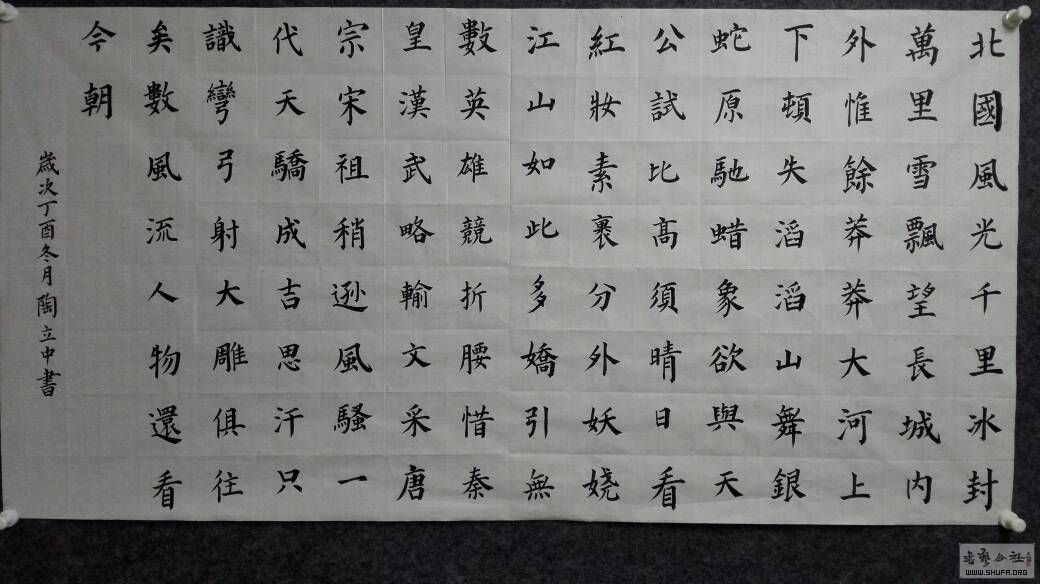 北國風光千里冰封
萬里雪飄望長城內
外惟餘莽莽大河上
下頓失滔滔山舞銀
蛇原馳蜡象欲與天
公試比高須晴日看
紅妝素裹分外妖娆
江山如此多嬌引無
數英雄競折腰惜秦
皇漢武略輸文采唐
宗宋祖稍遜風騷一
代天驕成吉思汗只
識彎弓射大雕俱往
矣數風流人物還看
今朝
歲次丁酉冬月陶立中書
WWW.SHUFA.ORG